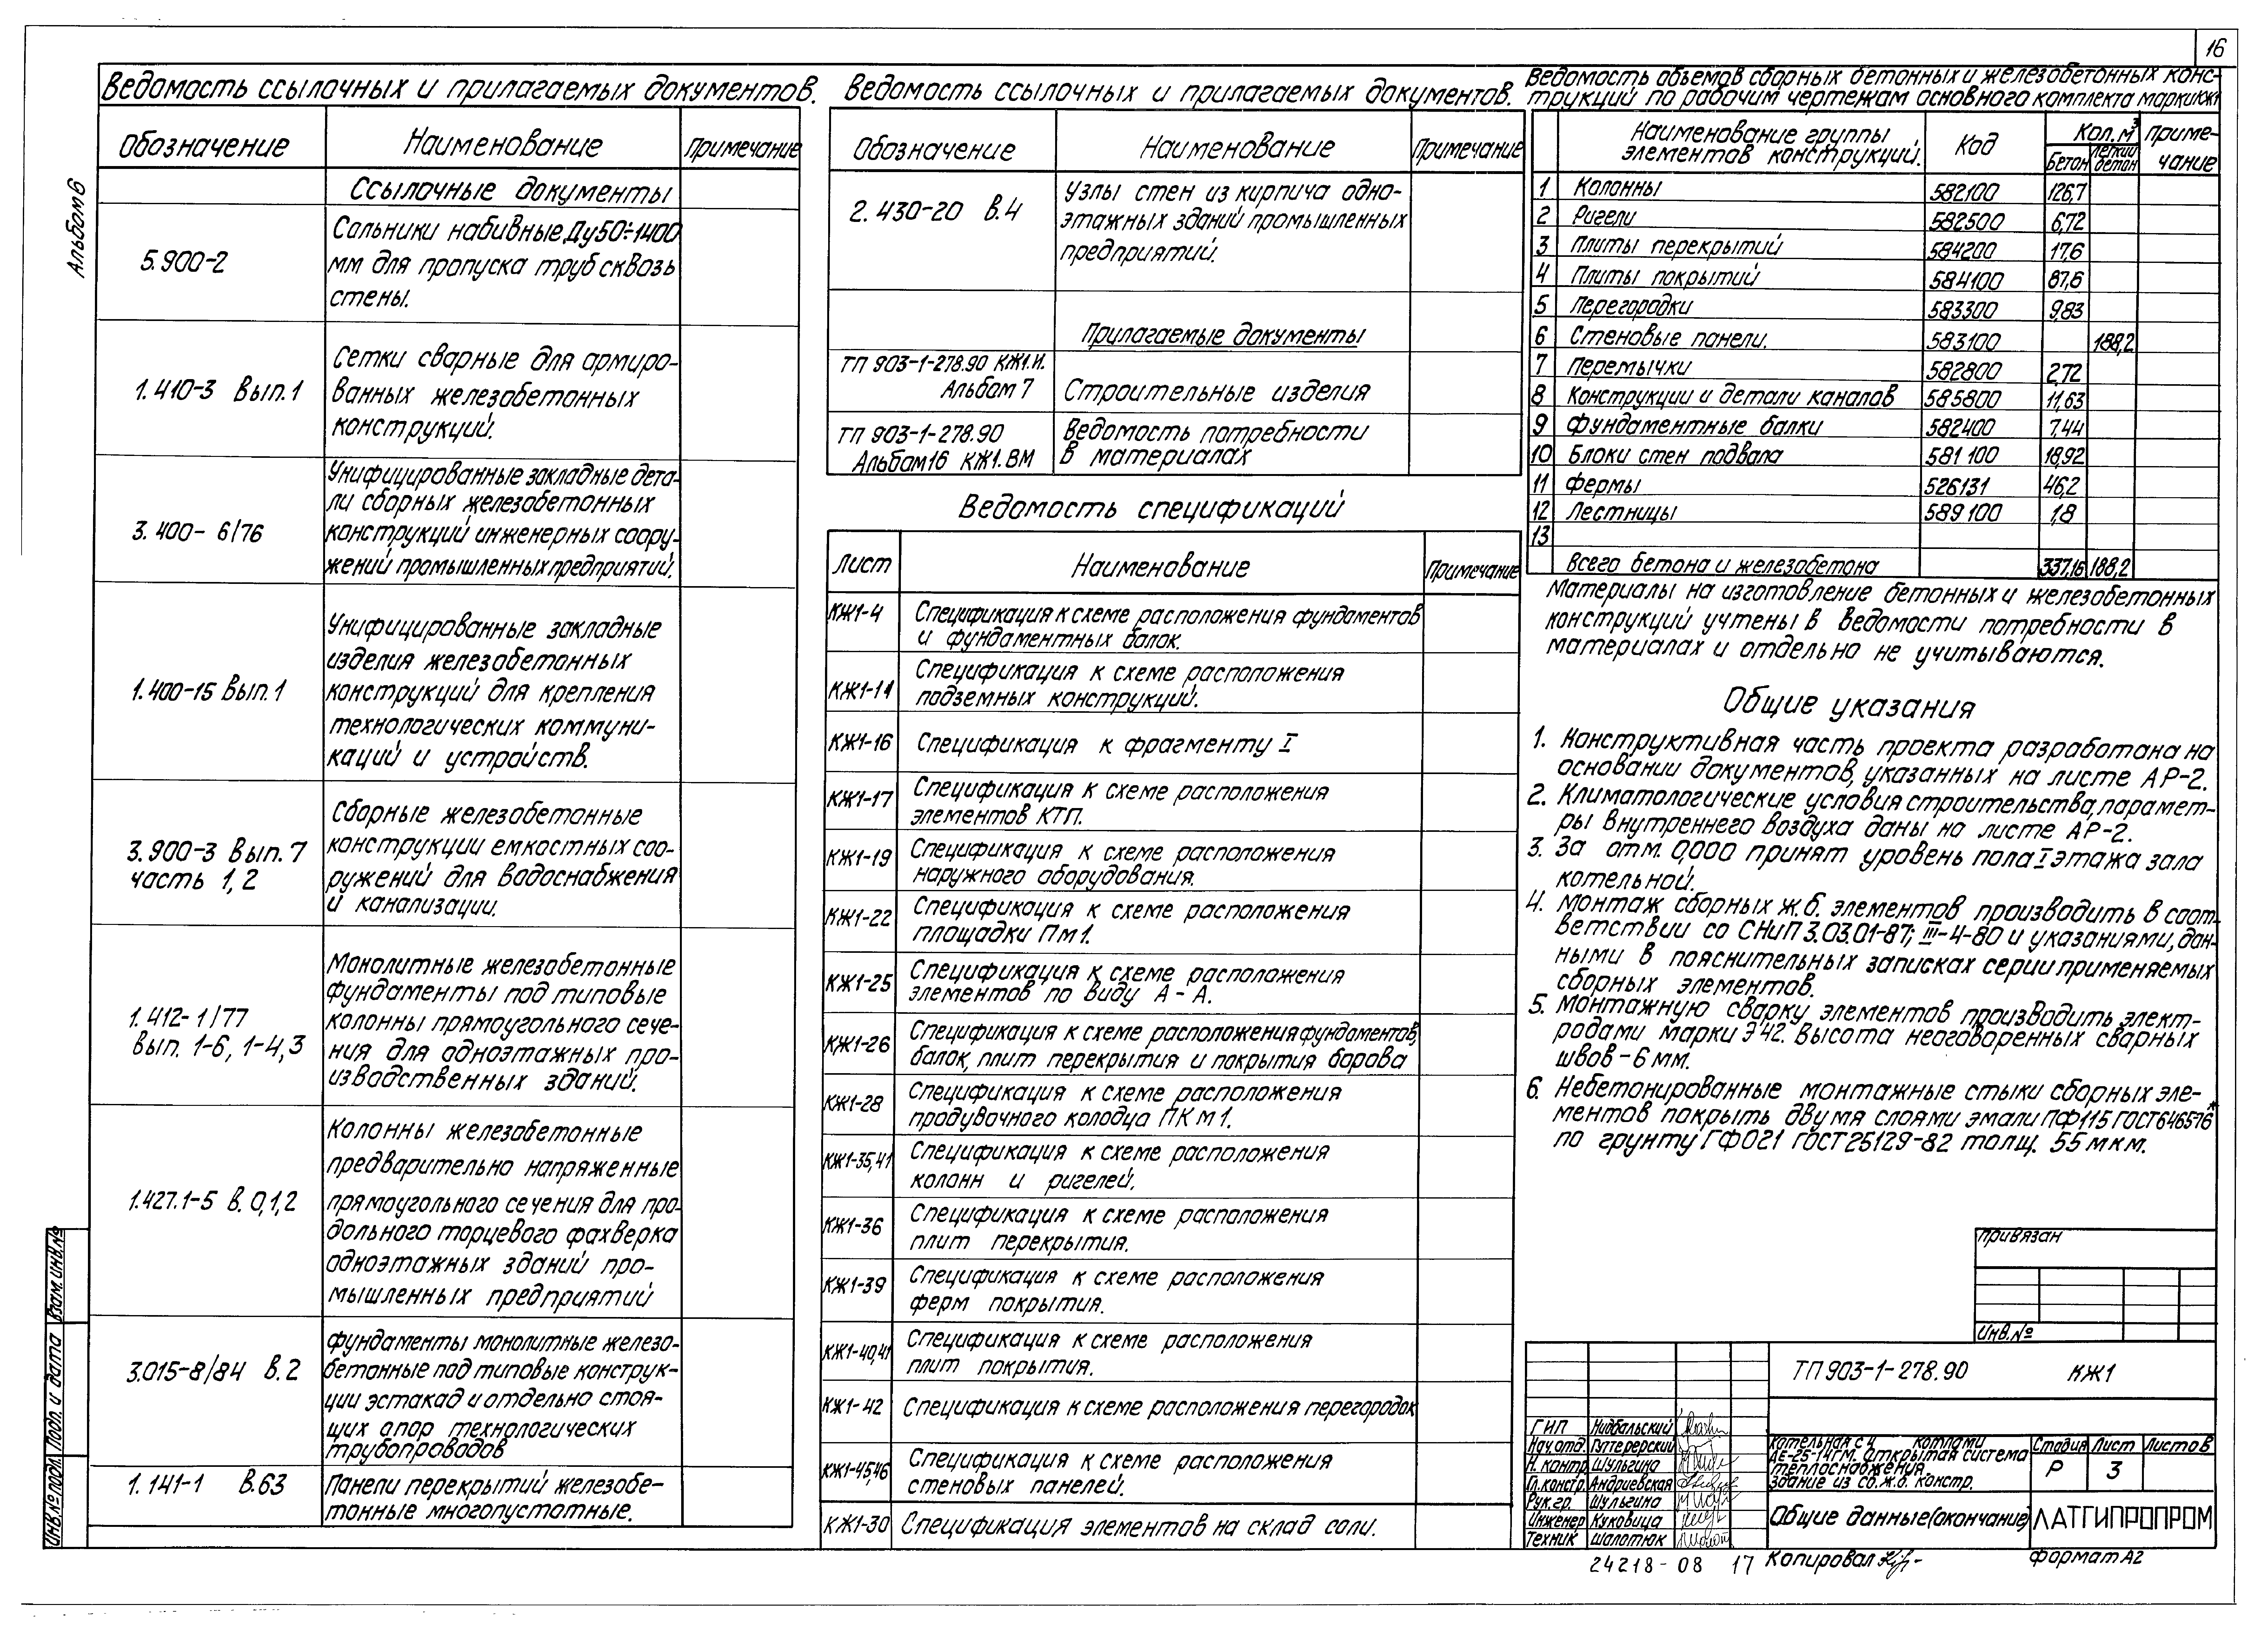 16
Альбом 6
Ведомость ссылочных и прилагаемых документов.
Обозначение Наименование Примечание
Ссылочные документы
5.900-2
Сальники набивные Ду50÷1400
мм для пропуска труб сквозь
стены.
1.410-3 Вып.1
Сетки сварные для армиро-
ванных железобетонных
конструкций.
3.400-6/76
Унифицированные закладные дета-
ли сборных железобетонных
конструкций инженерных соору-
жений промышленных предприятий.
1.400-15 Вып.1
Унифицированные закладные
изделия железобетонных
конструкций для крепления
технологических коммуни-
каций и устройств.
3.900-3 Вып.7
часть 1,2
Сборные железобетонные
конструкции емкостных соо-
ружений для водоснабжения
и канализации.
1.412-1/77
вып. 1-6, 1-4,3
Монолитные железобетонные
фундаменты под типовые
колонны прямоугольного сече-
ния для одноэтажных про-
изводственных зданий.
1.427.1-5 в.0,1,2
Колонны железобетонные
предварительно напряженные
прямоугольного сечения для про-
дольного торцевого фахверка
одноэтажных зданий про-
мышленных предприятий
3.015-8/84 в.2
Фундаменты монолитные железо-
бетонные под типовые конструк-
ции эстакад и отдельно стоя-
щих опор технологических
трубопроводов
1.141-1 в.63
Панели перекрытий железобе-
тонные многопустотные.
Ведомость ссылочных и прилагаемых документов.
Обозначение Наименование Примечание
2.430-20 в.4
Узлы стен из кирпича одно-
этажных зданий промышленных
предприятий.
Прилагаемые документы
ТП 903-1-278.90 КЖ1.И.
Альбом 7
Строительные изделия
ТП 903-1-278.90
Альбом 16 КЖ1.ВМ
Ведомость потребности
в материалах
Ведомость спецификаций
Лист Наименование Примечание
КЖ1-4 Спецификация к схеме расположения фундаментов
и фундаментных балок.
КЖ1-14 Спецификация к схеме расположения
подземных конструкций.
КЖ1-16 Спецификация к фрагменту I
КЖ1-17 Спецификация к схеме расположения
элементов КТП.
КЖ1-19 Спецификация к схеме расположения
наружного оборудования.
КЖ1-22 Спецификация к схеме расположения
площадки Пм1.
КЖ1-25 Спецификация к схеме расположения
элементов по виду А-А.
КЖ1-26 Спецификация к схеме расположения фундаментов,
балок, плит перекрытия и покрытия борова
КЖ1-28 Спецификация к схеме расположения
продувочного колодца ПКм1.
КЖ1-35,41 Спецификация к схеме расположения
колонн и ригелей.
КЖ1-36 Спецификация к схеме расположения
плит перекрытия.
КЖ1-39 Спецификация к схеме расположения
ферм покрытия.
КЖ1-40,41 Спецификация к схеме расположения
плит покрытия.
КЖ1-42 Спецификация к схеме расположения перегородок
КЖ1-45,46 Спецификация к схеме расположения
стеновых панелей.
КЖ1-30 Спецификация элементов на склад соли.
Ведомость объемов сборных бетонных и железобетонных конс-
трукций по рабочим чертежам основного комплекта марки КЖ1
Наименование группы элементов конструкций. Код Кол. м³ Приме-
чание
Бетон Легкий бетон
1 Колонны 582100 126,7
2 Ригели 582500 6,72
3 Плиты перекрытий 584200 17,6
4 Плиты покрытий 584100 87,6
5 Перегородки 583300 9,83
6 Стеновые панели. 583100 188,2
7 Перемычки 582800 2,72
8 Конструкции и детали каналов 585800 11,63
9 Фундаментные балки 582400 7,44
10 Блоки стен подвала 581100 18,92
11 Фермы 526131 46,2
12 Лестницы 589100 1,8
13
Всего бетона и железобетона 337,16 188,2
Материалы на изготовление бетонных и железобетонных
конструкций учтены в ведомости потребности в
материалах и отдельно не учитываются.
Общие указания
1. Конструктивная часть проекта разработана на
основании документов, указанных на листе АР-2.
2. Климатологические условия строительства, парамет-
ры внутреннего воздуха даны на листе АР-2.
3. За отм. 0,000 принят уровень пола I этажа зала
котельной.
4. Монтаж сборных ж.б. элементов производить в соот-
ветствии со СНиП 3.03.01-87; III-4-80 и указаниями, дан-
ными в пояснительных записках серии применяемых
сборных элементов.
5. Монтажную сварку элементов производить элект-
родами марки Э42. Высота неоговоренных сварных
швов - 6 мм.
6. Небетонированные монтажные стыки сборных эле-
ментов покрыть двумя слоями эмали ПФ115 ГОСТ6465-76*
по грунту ГФ021 ГОСТ25129-82 толщ. 55 мкм.
Привязан
Инв.№
ТП 903-1-278.90 КЖ1
ГИП Нидбальский
Нач.отд. Гуттерерский
Н. контр. Шульгина
Гл.констр. Андриевская
Рук.гр. Шульгина
Инженер Куковица
Техник Шалотюк
Котельная с 4 котлами
ДЕ-25-14ГМ. Открытая система
теплоснабжения.
Здание из сб.ж.б. констр.
Стадия Лист Листов
Р 3
Общие данные (окончание)
ЛАТГИПРОПРОМ
24218-08 17 Копировал
Формат А2
Инв.№ подл. Подп. и дата Взам.инв.№